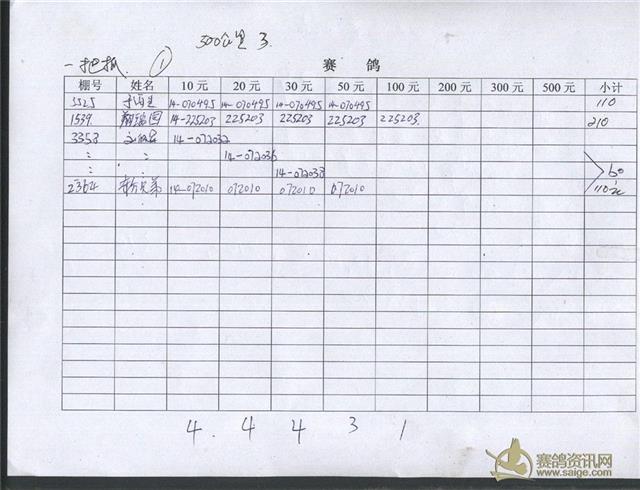 300公里 3
一把抓 ① 赛鸽
棚号 姓名 10元 20元 30元 50元 100元 200元 300元 500元 小计
3525 14-070495 14-070495 14-070495 14-070495 110
1539 14-225203 225203 225203 225203 225203 210
3358 14-072032
: : 14-072036
: : 14-072038 60
2364 兄弟 14-072010 072010 072010 072010 110元
4. 4 4 3 1
赛鸽资讯网
www.saige.com